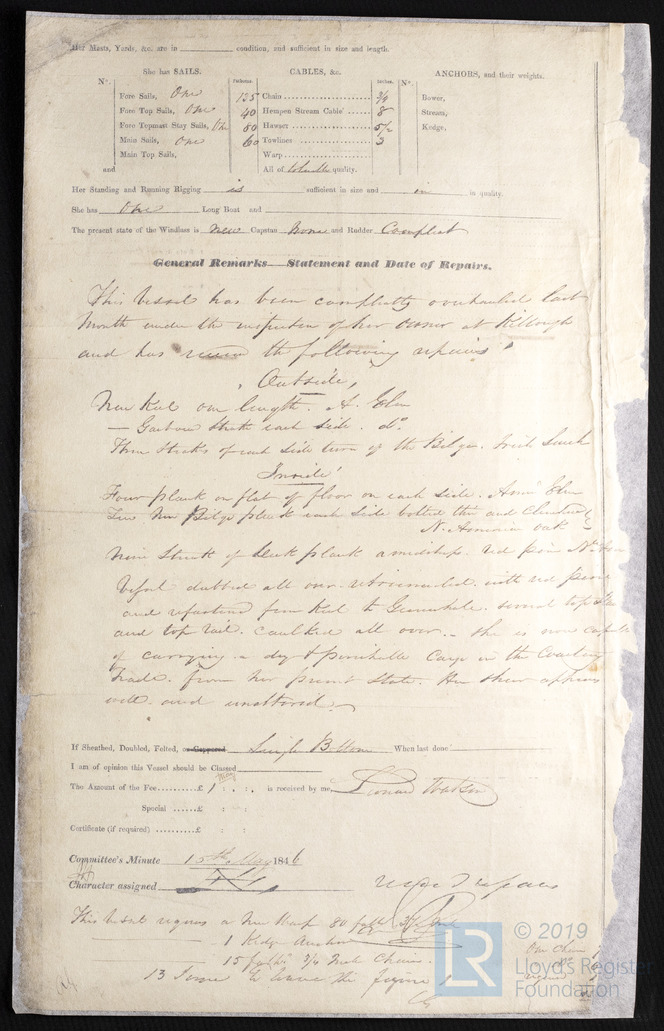 Her Masts, Yards, &c. are in condition, and sufficient in size and length.
She has SAILS. CABLES, &c. ANCHORS, and their weights.
N°. Fathoms. Inches. N°.
Fore Sails, One Chain 125 3/4 Bower,
Fore Top Sails, One Hempen Stream Cable 40 8 Stream,
Fore Topmast Stay Sails, One Hawser 80 5 1/2 Kedge,
Main Sails, One Towlines 60 3
Main Top Sails, Warp
and All of quality.
Her Standing and Running Rigging is sufficient in size and in in quality.
She has One Long Boat and
The present state of the Windlass is New Capstan None and Rudder Compleat
General Remarks Statement and Date of Repairs.
This Vessel has been completely overhauled last
Month under the inspection of her Owner at Killough
and has the following repairs
Outside,
New Keel our length. A. Elm
— Garboard Strake each side. do.
Three Strakes of each side turn of the Bilge. Larch
Inside
Four plank on flat of floor on each side. Elm
New Bilge plank each side bolted thro and Clenched
N. American oak
Nine Strake of deck plank amidships. red pine
Vessel dubbed all over with red pine
and refastened from Keel to Gunwhale. top
and top rail. caulked all over. She is now
of carrying a dry & perishable Cargo in the Coasting
trade. from her present State. Her shear appears
well and unaltered.
If Sheathed, Doubled, Felted, or Coppered Single Bottom When last done
I am of opinion this Vessel should be Classed
The Amount of the Fee £ 1 : : is received by me,
Special £ : :
Certificate (if required) £ : :
Committee's Minute 15th May 1846
Character assigned
This Vessel requires a New Warp 80 fath
— 1 Kedge Anchor
— 15 faths 3/4 Inch Chain.
13 June to leave the figure 1
© 2019
LR Lloyd's Register
Foundation